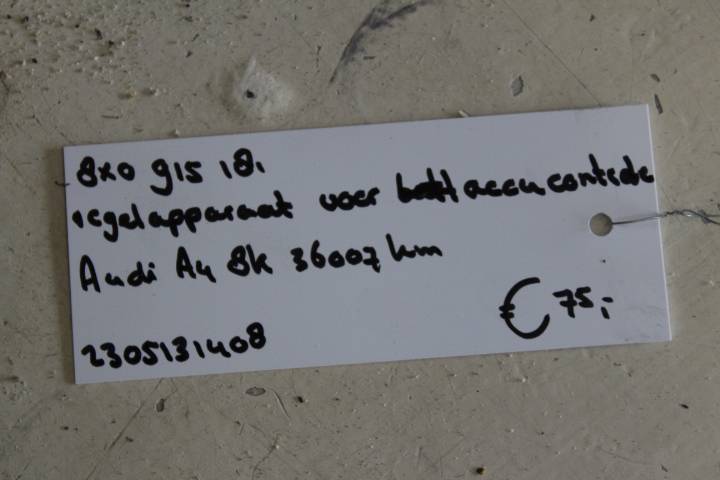 8x0 915 181
regelapparaat voor accucontrole
Audi A4 8k 36007 km
€ 75,-
2305131408